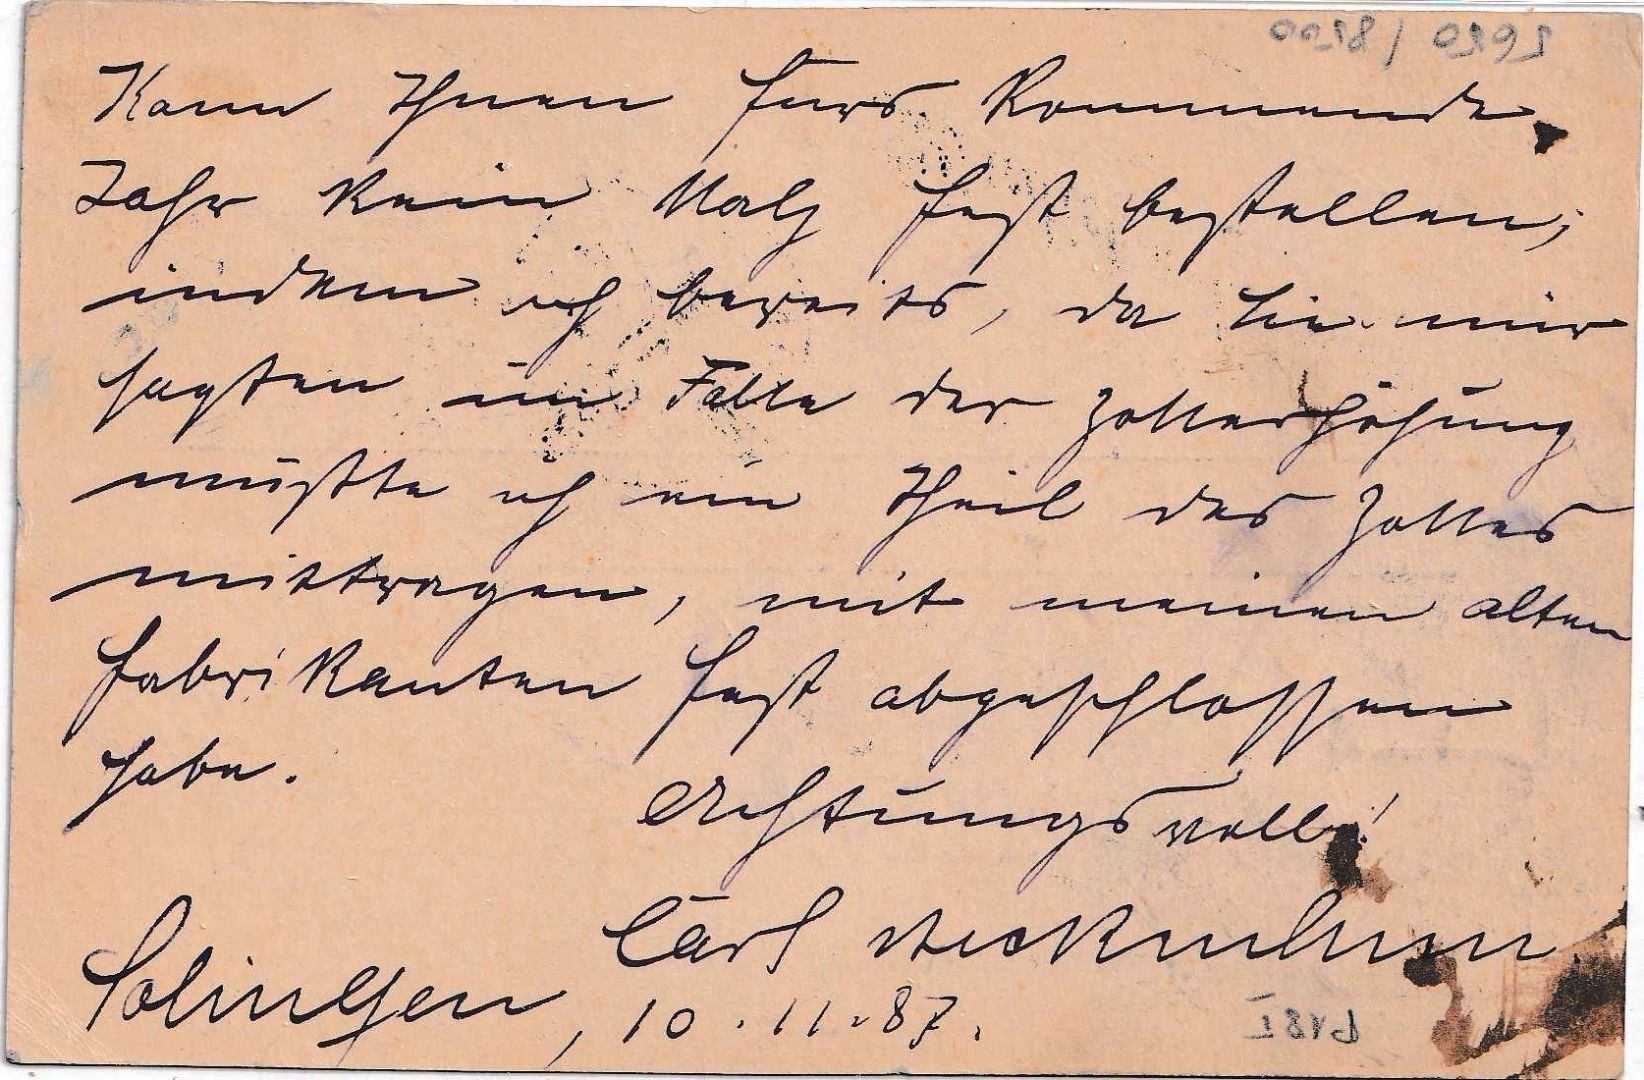 Kann Ihnen fürs kommende
Jahr kein Malz fest bestellen;
indem ich bereits, da Sie mir
sagten im Falle der Zollerhöhung
müßte ich ein Theil des Zolles
mittragen, mit meinen alten
Fabrikanten fest abgeschlossen
habe.
Achtungsvoll!
Carl
Solingen, 10.11.87.